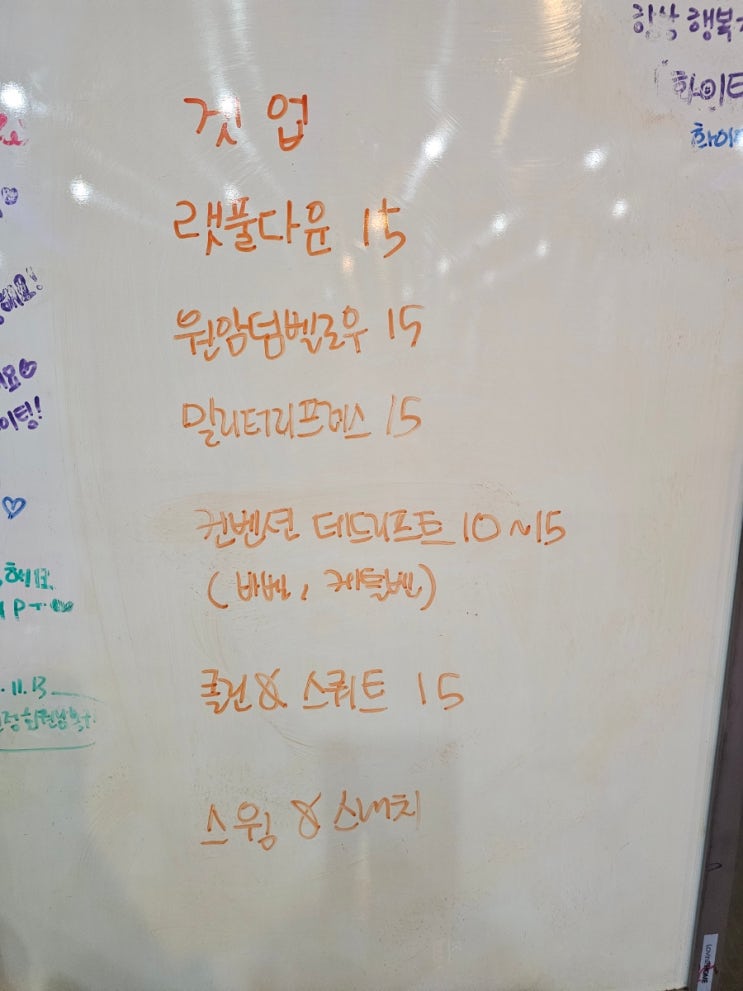 겟 업
랫풀다운 15
원암덤벨로우 15
밀리터리프레스 15
컨벤션 데드리프트 10~15
(바벨, 케틀벨)
클린 & 스쿼트 15
스윙 & 스내치
항상 행복
화이티
화이
이팅!
11.13